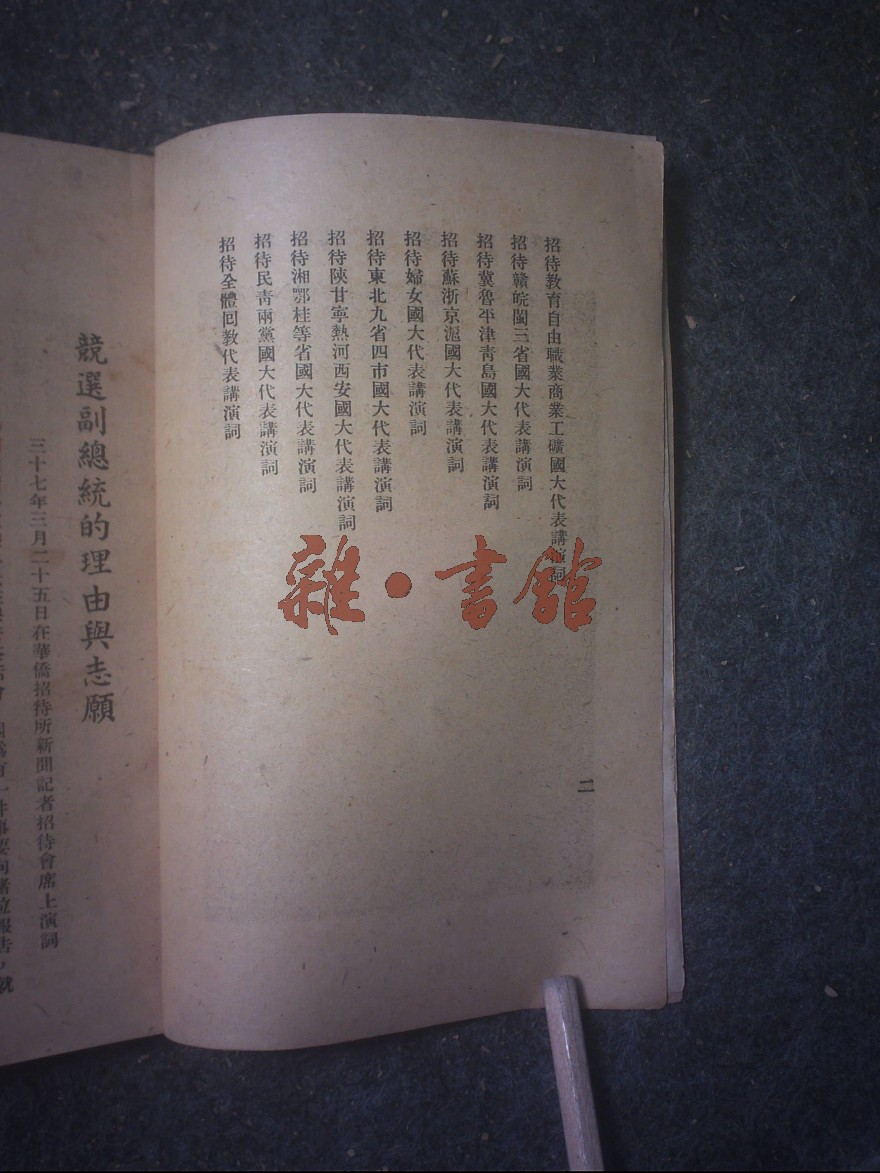 招待教育自由職業商業工礦國大代表講演詞
招待贛皖閩三省國大代表講演詞
招待冀魯平津靑島國大代表講演詞
招待蘇浙京滬國大代表講演詞
招待婦女國大代表講演詞
招待東北九省四市國大代表講演詞
招待陝甘寧熱河西安國大代表講演詞
招待湘鄂桂等省國大代表講演詞
招待民靑兩黨國大代表講演詞
招待全體回敎代表講演詞
二
雜·書館
競選副總統的理由與志願
三十七年三月二十五日在華僑招待所新聞記者招待會席上演詞
有一件事要向諸位報吿，就